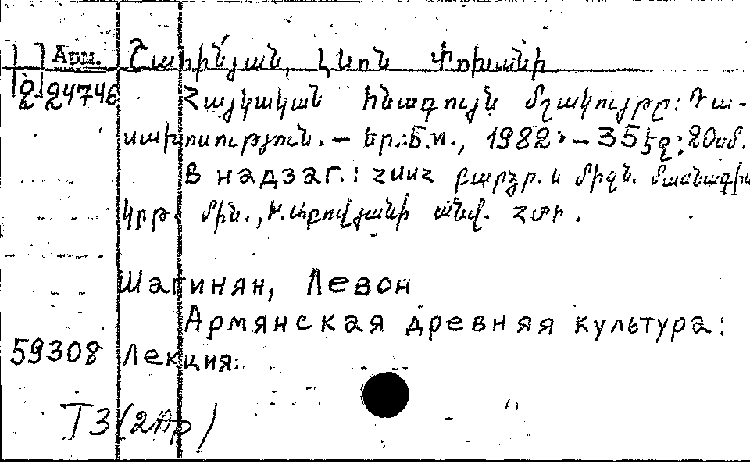 Арм. Շահինյան, Լևոն Փոխանի
Զ-24746 Հայկական հնագույն մշակույթը: Դա-
սախոսություն. – Եր.:Б.и., 1982. – 35 էջ; 20սմ.
В надзаг.: ՀՍՍՀ բարձր. և միջն. մասնագիտ
կրթ. մին., Խ.Աբովյանի անվ. ՀՄԻ.
Шагинян, Левон
Армянская древняя культура:
59308 Лекция.
Т3(2Ар)